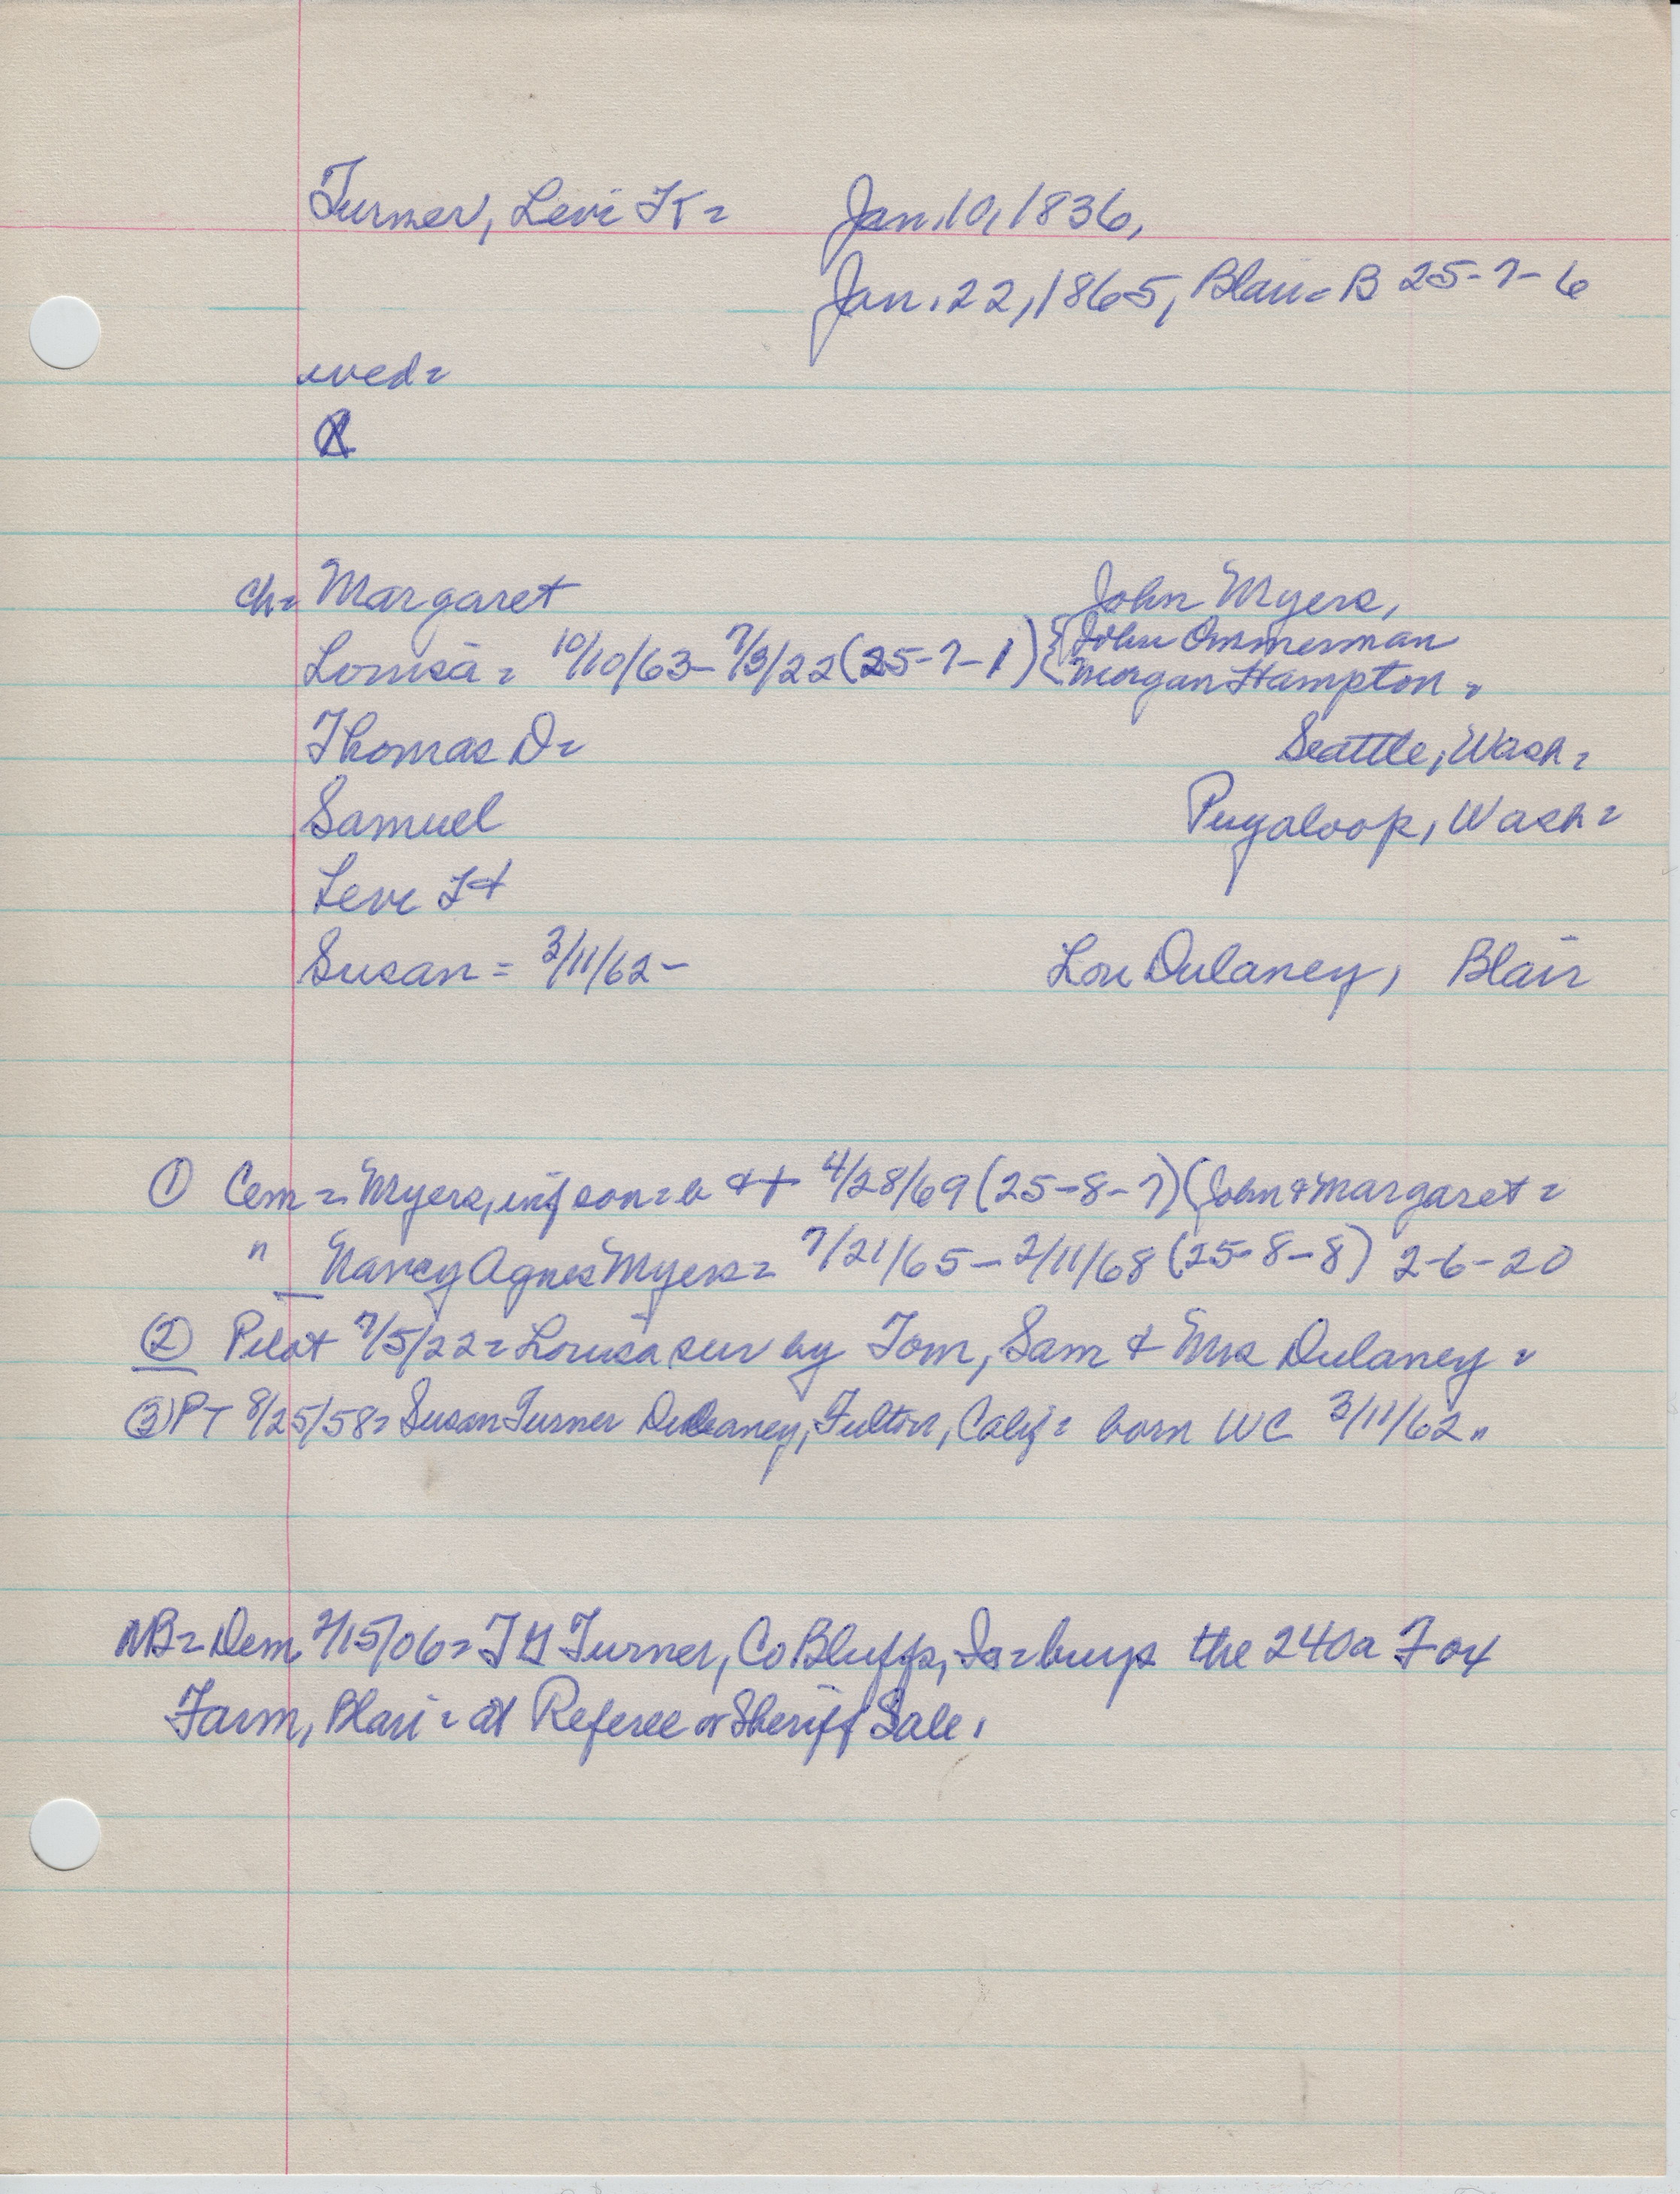 Turner, Levi K= Jan. 10, 1836,
Jan. 22, 1865, Blair= B 25-7-6
wed=
ch= Margaret John Myers,
Louisa= 10/10/63-7/3/22 (25-7-1) { John Ommerman
Morgan Hampton=
Thomas D= Seattle, Wash=
Samuel Puyaloop, Wash=
Levi H
Susan= 3/11/62- Lou Dulaney, Blair
① Cem= Myers, inf son= b & + 4/28/69 (25-8-7) (John & Margaret=
" Nancy Agnes Myers= 7/21/65-2/11/68 (25-8-8) 2-6-20
② Pilot 7/5/22= Louisa sur by Tom, Sam & Mrs Dulaney=
③ PT 8/25/58= Susan Turner Dulaney, Fulton, Calif= born WC 3/11/62"
NB= Dem 2/15/06= Turner, Co Bluffs, Ia= buys the 240a Fox
Farm, Blair= at Referee or Sheriff Sale.